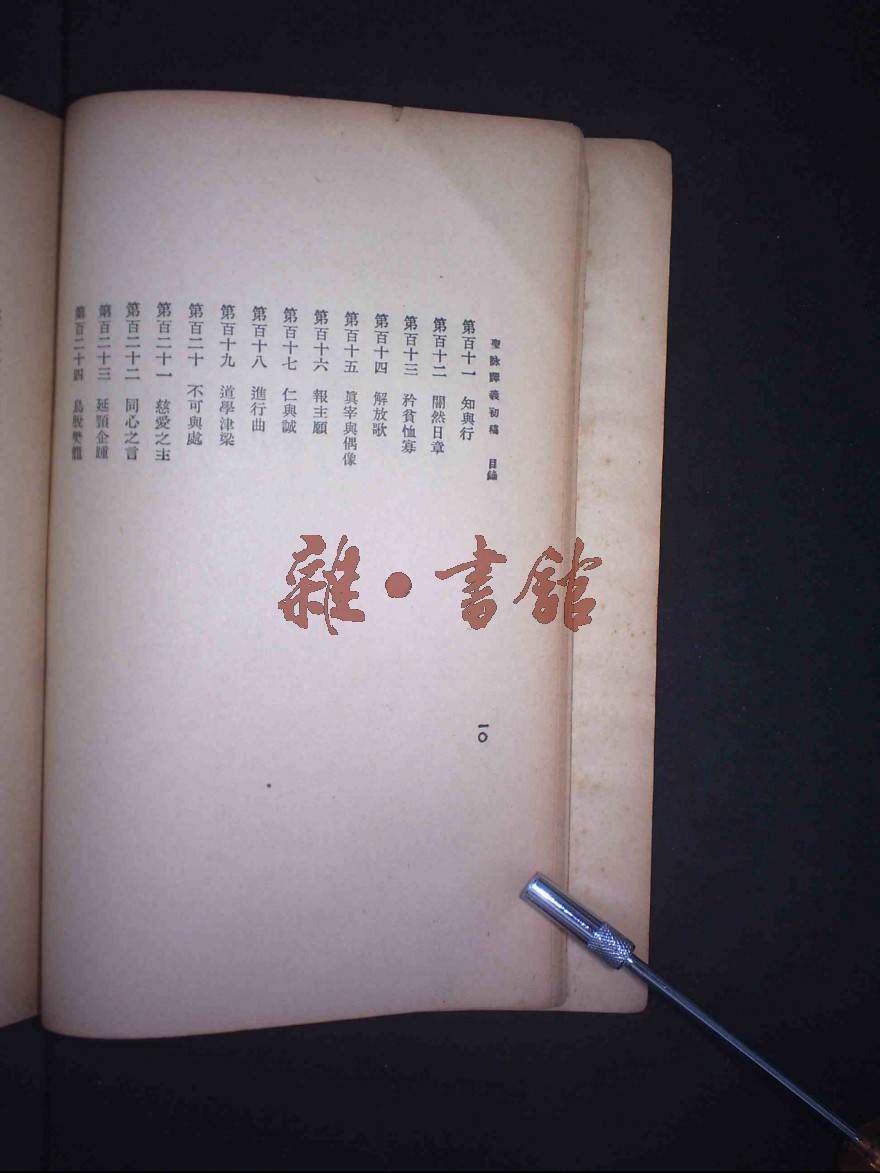 聖詠譯義初稿 目錄
第百十一 知與行
第百十二 闇然日章
第百十三 矜貧恤寡
第百十四 解放歌
第百十五 眞宰與偶像
第百十六 報主願
第百十七 仁與誠
第百十八 進行曲
第百十九 道學津梁
第百二十 不可與處
第百二十一 慈愛之主
第百二十二 同心之言
第百二十三 延頸企踵
第百二十四 鳥脫樊籠
一〇
雜·書館